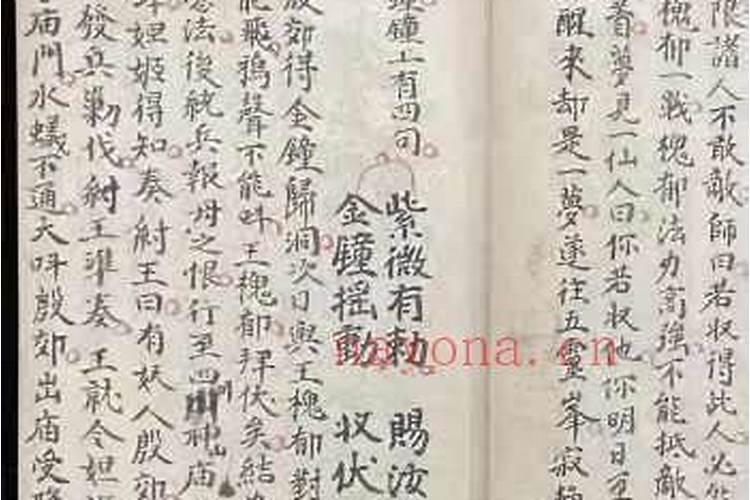 限諸人不敢敵師曰若収得此人必能
槐郁一戰槐郁法力高強不能抵敵
着夢見一仙人曰你若収他你明日可
醒來却是一夢遂往五靈峯寂
鐘上有四句
紫微有勅　賜汝
金鐘摇動　収伏
殷郊得金鐘歸洞次日與王槐郁對
能飛鴉聲不能呌王槐郁拜伏矣結
法後統兵報母之恨行至四神廟
妲姬得知奏紂王曰有妖人殷郊
發兵勦伐紂王准奏王就令妲
庙門水蟻不通大呌殷郊出庙受
nayona.cn